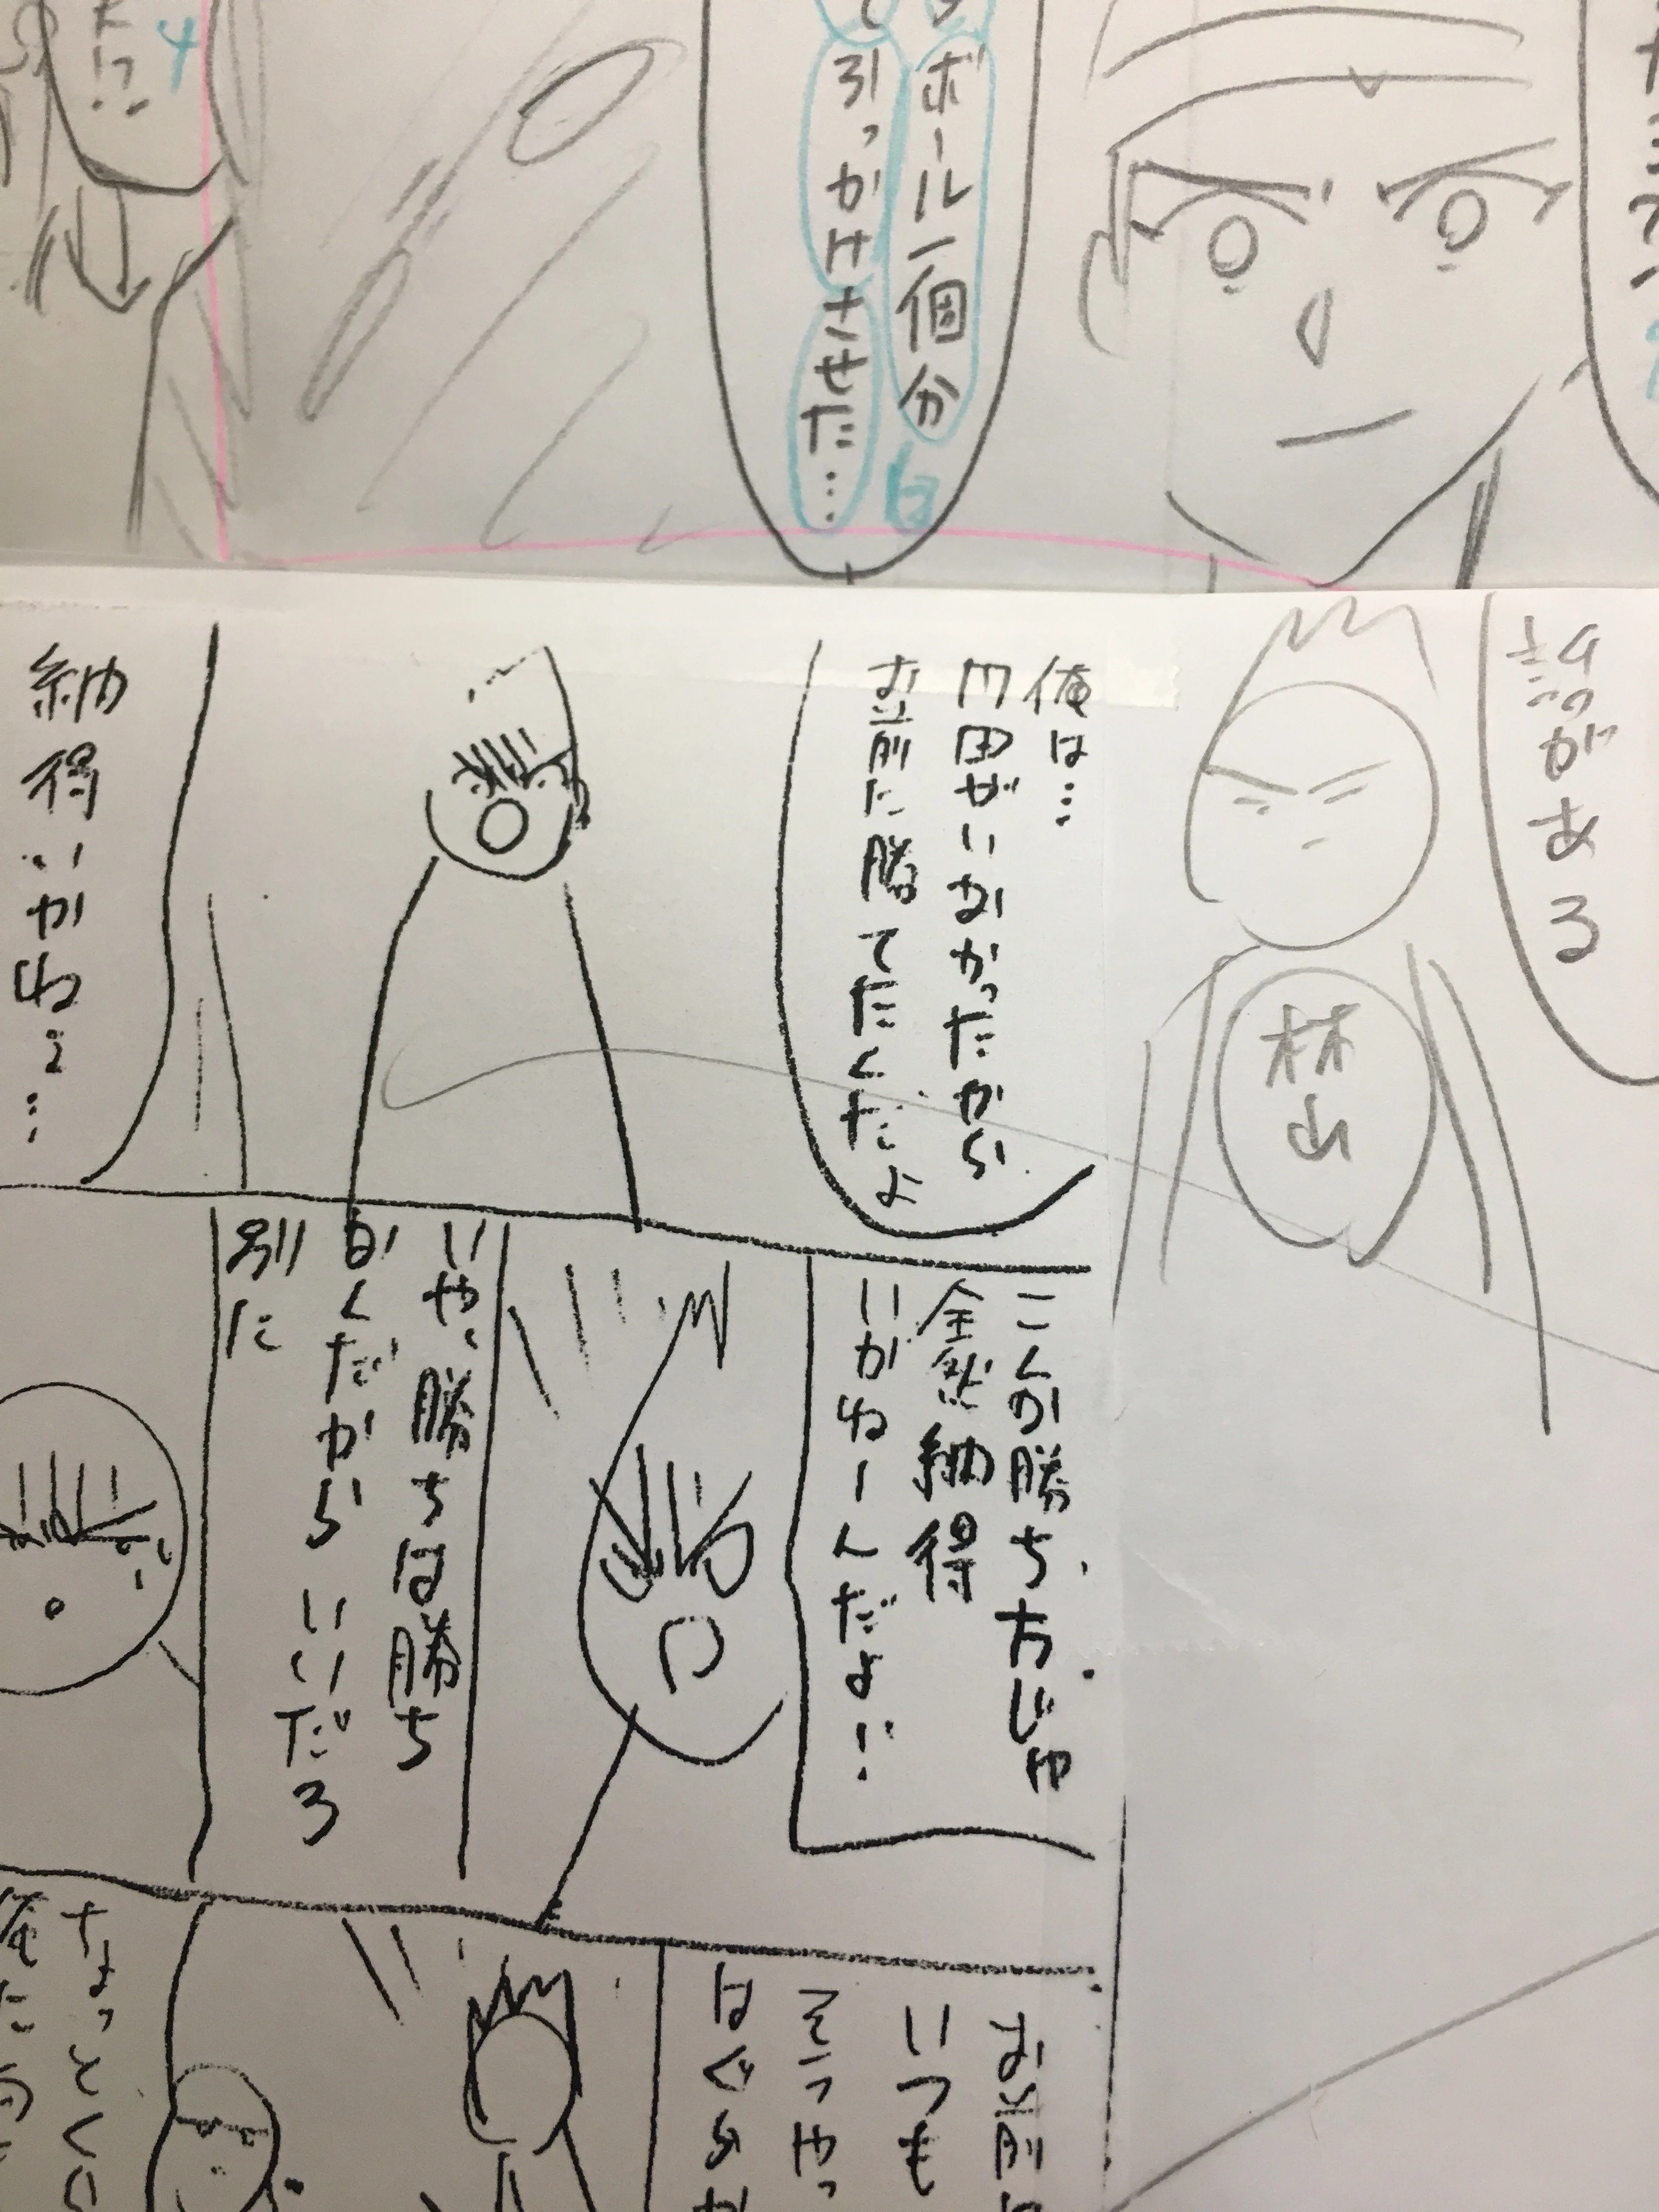 ボール一個分
引っかけさせた…
話がある
林山
俺は…
円田がいなかったから
お前に勝てたんだよ
納得いかねえ…
こんな勝ち方じゃ
全然納得
いかねーんだよ!!
いや、勝ちは勝ち
なんだからいいだろ
別に
お前
いつも
そうやっ
はぐらか